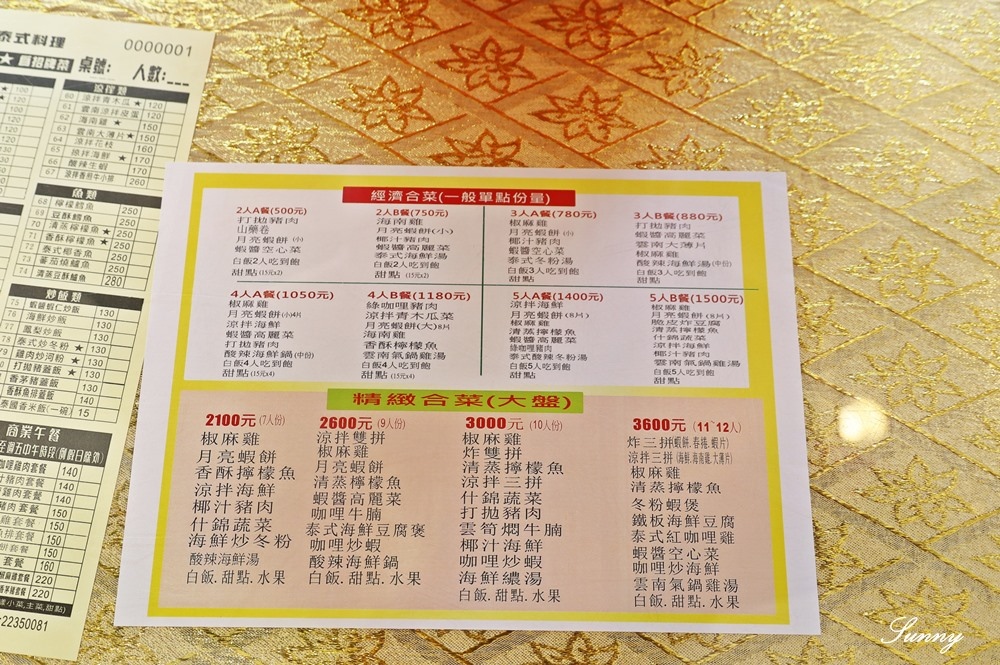 泰式料理
0000001
桌號:
人數:
涼拌類
60 涼拌青木瓜★ 120
61 雲南涼拌皮蛋 120
62 海南雞★ 150
63 雲南大薄片★ 150
64 涼拌花枝 160
65 涼拌海鮮★ 170
66 酸辣生蝦 170
67 260
魚類
68 檸檬鱈魚 250
69 豆酥鱈魚 250
70 清蒸檸檬魚★ 250
71 香酥檸檬魚★ 250
72 泰式椰香魚 250
73 蕃茄燒鱸魚 250
74 清蒸豆酥鱸魚 280
炒飯類
75 蝦鬆蝦仁炒飯 130
76 海鮮炒飯 130
77 鳳梨炒飯 130
78 泰式炒冬粉★ 130
雞肉炒河粉★ 130
打拋豬蓋飯★ 130
香茅豬蓋飯 130
香酥魚排蓋飯 140
泰國香米飯(一碗) 15
商業午餐
咖哩雞肉套餐 140
140
140
150
150
150
150
套餐 160
220
220
22350081
經濟合菜(一般單點份量)
2人A餐(500元)
打拋豬肉
山藥卷
月亮蝦餅(小)
蝦醬空心菜
白飯2人吃到飽
甜點(15元x2)
2人B餐(750元)
海南雞
月亮蝦餅(小)
椰汁豬肉
蝦醬高麗菜
泰式海鮮湯
白飯2人吃到飽
甜點(15元x2)
3人A餐(780元)
椒麻雞
月亮蝦餅(小)
椰汁豬肉
蝦醬空心菜
泰式冬粉湯
白飯3人吃到飽
甜點
3人B餐(880元)
打拋豬肉
蝦醬高麗菜
雲南大薄片
椒麻雞
酸辣海鮮湯(中份)
白飯3人吃到飽
甜點
4人A餐(1050元)
椒麻雞
月亮蝦餅(小)4片
涼拌海鮮
蝦醬高麗菜
打拋豬肉
酸辣海鮮鍋(中份)
白飯4人吃到飽
甜點(15元x4)
4人B餐(1180元)
綠咖哩豬肉
涼拌青木瓜菜
月亮蝦餅(大)8片
海南雞
香酥檸檬魚
雲南氣鍋雞湯
白飯4人吃到飽
甜點(15元x4)
5人A餐(1400元)
涼拌海鮮
月亮蝦餅(8片)
椒麻雞
清蒸檸檬魚
綠咖哩豬肉
泰式酸辣冬粉湯
白飯5人吃到飽
甜點
5人B餐(1500元)
椒麻雞
月亮蝦餅(8片)
脆皮炸豆腐
清蒸檸檬魚
什錦蔬菜
涼拌海鮮
椰汁豬肉
雲南氣鍋雞湯
白飯5人吃到飽
甜點
精緻合菜(大盤)
2100元(7人份)
椒麻雞
月亮蝦餅
香酥檸檬魚
涼拌海鮮
椰汁豬肉
什錦蔬菜
海鮮炒冬粉
酸辣海鮮湯
白飯.甜點.水果
2600元(9人份)
涼拌雙拼
椒麻雞
月亮蝦餅
清蒸檸檬魚
蝦醬高麗菜
咖哩牛腩
泰式海鮮豆腐煲
咖哩炒蝦
酸辣海鮮鍋
白飯.甜點.水果
3000元(10人份)
椒麻雞
炸雙拼
清蒸檸檬魚
涼拌三拼
什錦蔬菜
打拋豬肉
雲筍燜牛腩
椰汁海鮮
咖哩炒蝦
海鮮纜湯
白飯.甜點.水果
3600元(11~12人)
炸三拼(蝦餅.春捲.蝦片)
涼拌三拼(海鮮.海南雞.大薄片)
椒麻雞
清蒸檸檬魚
冬粉蝦煲
鐵板海鮮豆腐
泰式紅咖哩雞
蝦醬空心菜
咖哩炒海鮮
雲南氣鍋雞湯
白飯.甜點.水果
Sunny